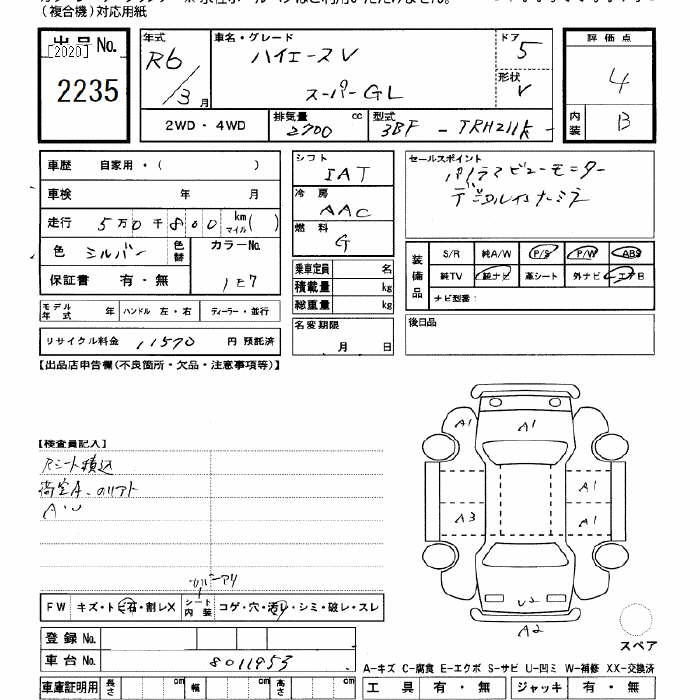 (複合機)対応用紙
出品No.
[2020]
2235
年式
R6/3月
車名・グレード
ハイエースV
スーパーGL
ドア
5
形状
V
2WD・4WD
排気量 cc
2700
型式
3BF-TRH211K-
評価点
4
内装
B
車歴 自家用・( )
車検 年 月
走行 5万0千800 km マイル( )
色 シルバー 色替
カラーNo.
1E7
保証書 有・無
モデル年式 年 ハンドル 左・右 ディーラー・並行
リサイクル料金 11570 円 預託済
シフト
IAT
冷房
AAC
燃料
G
乗車定員 名
積載量 kg
総重量 kg
名変期限
月 日
セールスポイント
パノラマビューモニター
デジタルインナーミラー
装備品
S/R 純A/W P/S P/W ABS
純TV 純ナビ 革シート 外ナビ エアB
ナビ型番:
後日品
【出品店申告欄(不良箇所・欠品・注意事項等)】
【検査員記入】
Rシート積込
荷室A、
A・U
A1
A1
A1
A3
A1
U2
A2
スペア
FW キズ・トビ石・割レX シート内装 コゲ・穴・汚レ・シミ・破レ・スレ
登録No.
車台No. 8011953
A-キズ C-腐食 E-エクボ S-サビ U-凹ミ W-補修 XX-交換済
車庫証明用 長さ cm 幅 cm 高さ cm
工具 有・無 ジャッキ 有・無